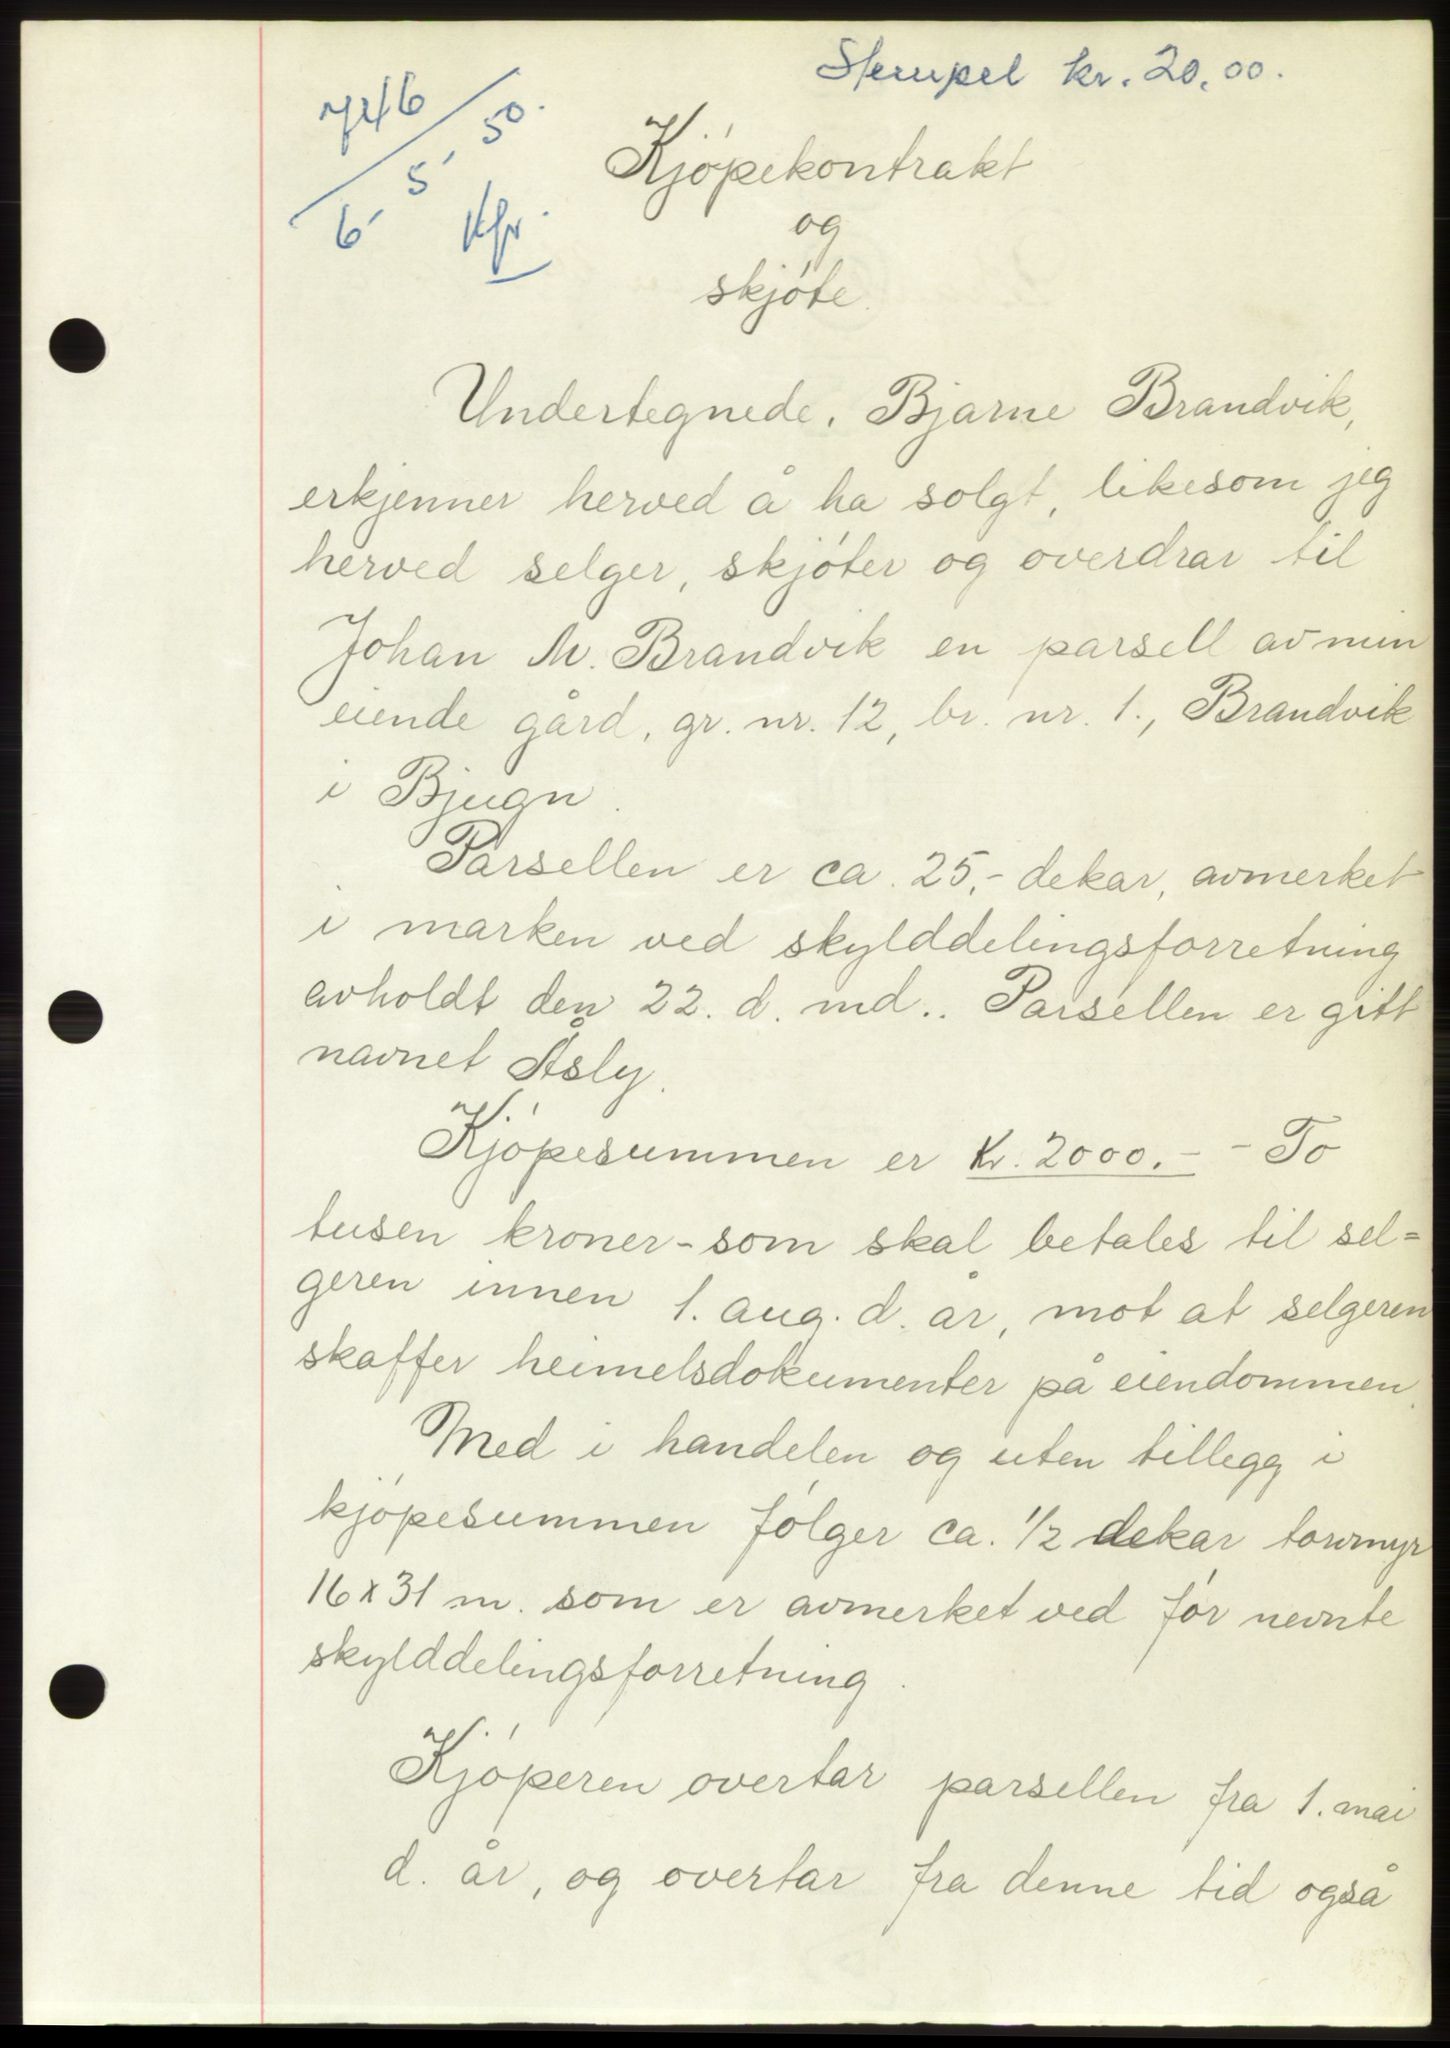 Stempel kr. 20,00.
746
6-5-50.
Kjópekontrakt
og
skjóte.
Undertegnede, Bjarne Brandvik,
erkjenner herved å ha solgt, likesom jeg
herved selger, skjóter og overdrar til
Johan M. Brandvik en parsell av min
eiende gård, gr. nr. 12, br. nr. 1., Brandvik
i Bjugn.
Parsellen er ca. 25,- dekar, avmerket
i marken ved skylddelingsforretning
avholdt den 22. d. md.. Parsellen er gitt
navnet Åsly.
Kjópesummen er Kr. 2000.- - To
tusen kroner - som skal betales til sel=
geren innen 1. aug. d. år, mot at selgeren
skaffer heimelsdokumenter på eiendommen.
Med i handelen og uten tillegg i
kjópesummen fólger ca. 1/2 dekar torvmyr
16 x 31 m. som er avmerket ved fór nevnte
skylddelingsforretning.
Kjóperen overtar parsellen fra 1. mai
d. år, og overtar fra denne tid også